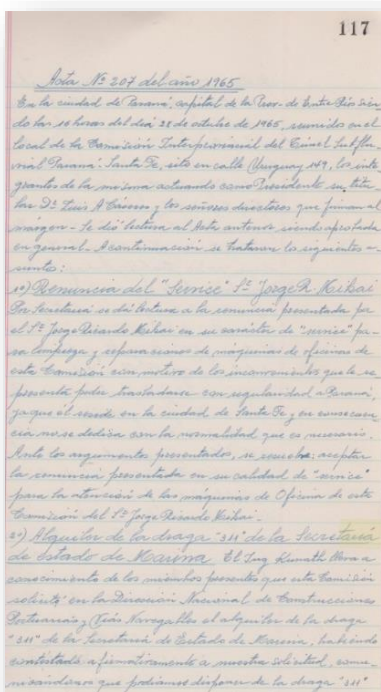 117
Acta Nº 207 del año 1965
En la ciudad de Paraná, capital de la Prov. de Entre Ríos sien
do las 10 horas del día 28 de octubre de 1965, reunido en el
local de la Comisión Interprovincial del Túnel Subflu-
vial Paraná-Santa Fe, sito en calle Uruguay los inte
grantes de la misma actuando como Presidente su titu
lar Dr. Luis A. y los señores directores que firman al
márgen - Se dió lectura al Acta anterior siendo aprobada
en general. A continuación se trataron los siguientes a-
suntos:
1º) Renuncia del "Service" Sr. Jorge R. Mihai
Por Secretaría se dió lectura a la renuncia presentada por
el Sr. Jorge Ricardo Mihai en su carácter de "service" pa-
ra limpieza y reparaciones de máquinas de oficinas de
esta Comisión con motivo de los inconvenientes que le se
presenta poder trasladarse con regularidad a Paraná,
ya que él reside en la ciudad de Santa Fe, y en consecuen
cia no se dedica con la normalidad que es necesario.
Ante los argumentos presentados, se resuelve: aceptar
la renuncia presentada en su calidad de "service"
para la atención de las máquinas de Oficina de esta
Comisión del Sr. Jorge Ricardo Mihai.-
2º) Alquiler de la draga "311" de la Secretaría
de Estado de Marina. El Ing. Kunath lleva a
conocimiento de los miembros presentes que esta Comisión
solicitó en la Dirección Nacional de Construcciones
Portuarias y Vías Navegables el alquiler de la draga
"311" de la Secretaría de Estado de Marina, habiendo
contestado afirmativamente a nuestra solicitud, comu-
nicándonos que podríamos disponer de la draga "311"